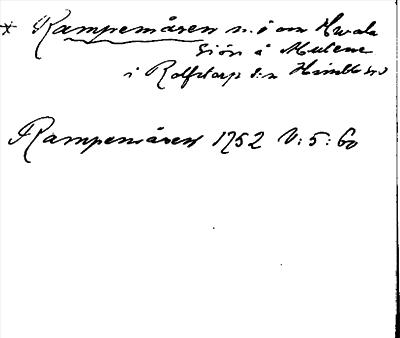 * Rampemåsen n.ö om Hwala
Sjön å Mulene
i Rolfstorp s:n Himble hd
Rampemåsen 1752 V:5:60